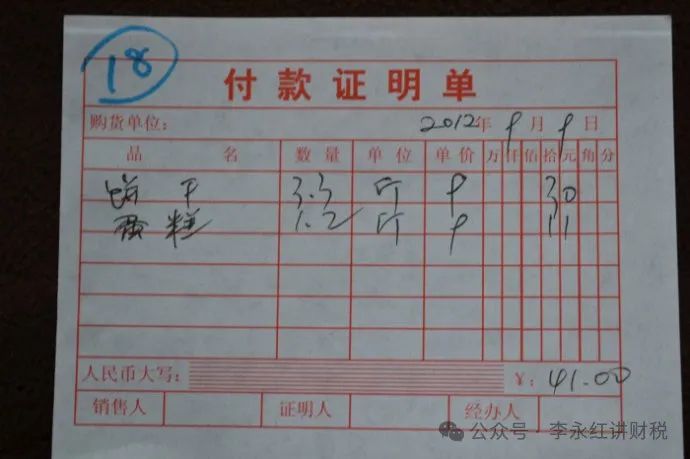 18
付款证明单
购货单位： 2012年 9月 9日
品 名 数量 单位 单价 万 仟 佰 拾 元 角 分
饼干 3.3 斤 9 30
蛋糕 1.2 斤 9 11
人民币大写： ￥：41.00
销售人 证明人 经办人
公众号·李永红讲财税